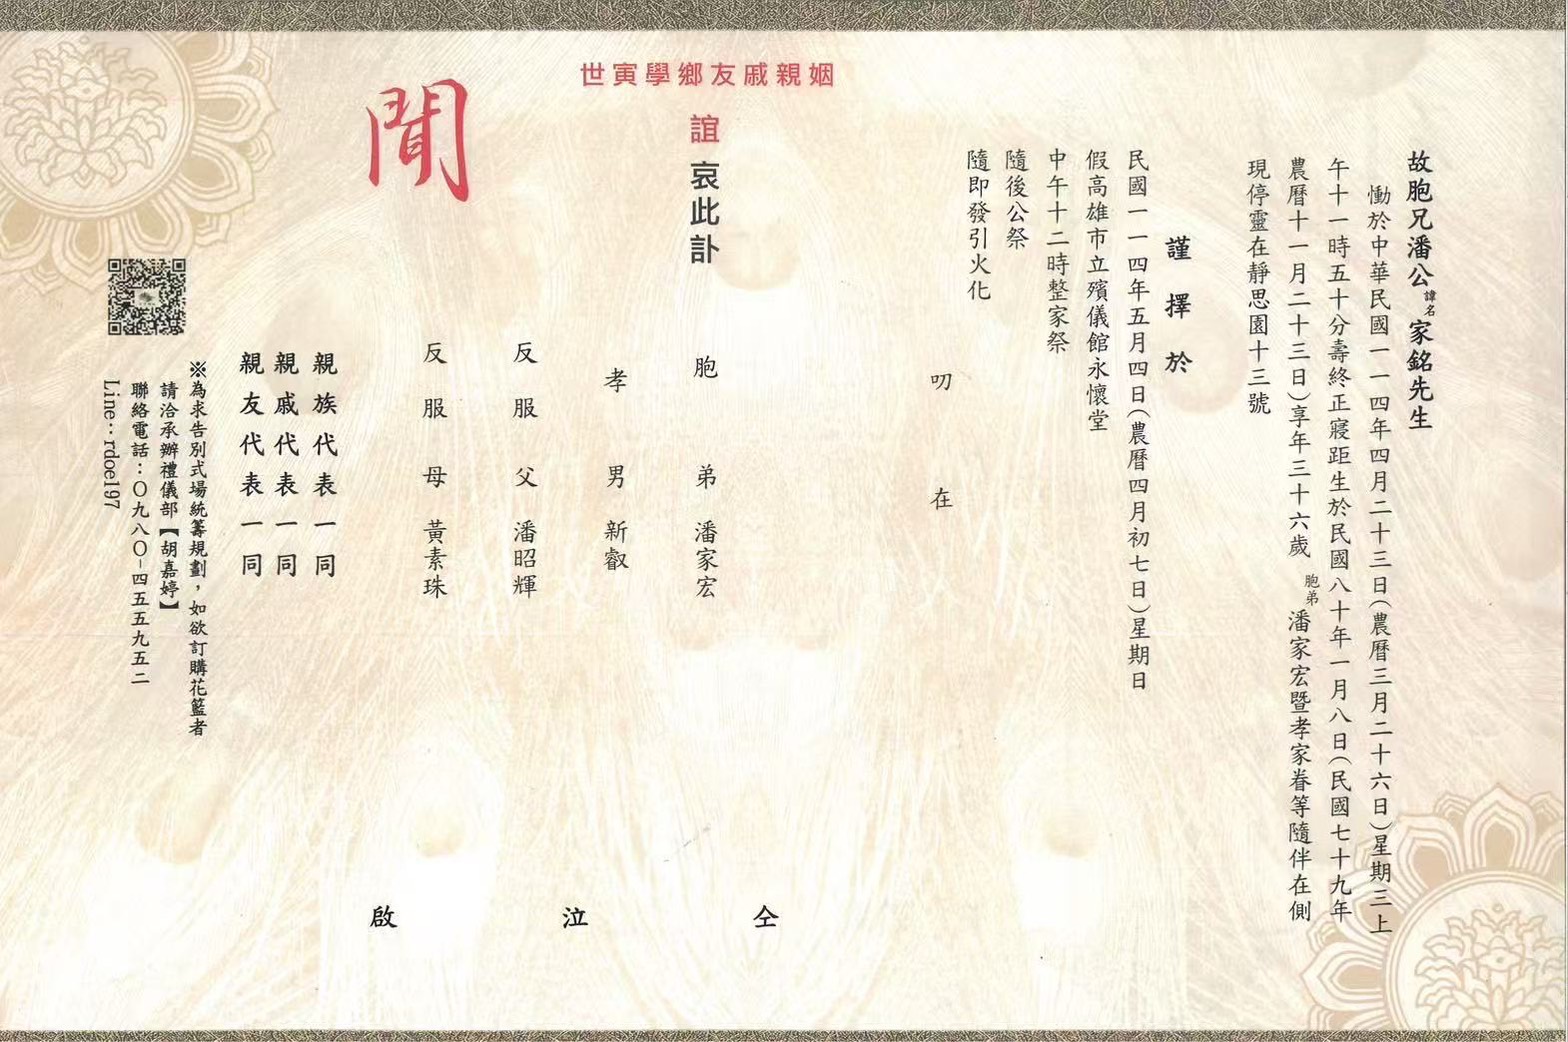 故胞兄潘公諱名家銘先生
慟於中華民國一一四年四月二十三日(農曆三月二十六日)星期三上
午十一時五十分壽終正寢距生於民國八十年一月八日(民國七十九年
農曆十一月二十三日)享年三十六歲 胞弟潘家宏暨孝家眷等隨伴在側
現停靈在靜思園十三號
謹擇於
民國一一四年五月四日(農曆四月初七日)星期日
假高雄市立殯儀館永懷堂
中午十二時整家祭
隨後公祭
隨即發引火化
叨在
世寅學鄉友戚親姻
誼哀此訃
聞
胞弟 潘家宏
孝男 新叡
反服父 潘昭輝
反服母 黃素珠
仝泣啟
親族代表一同
親戚代表一同
親友代表一同
※為求告別式場統籌規劃,如欲訂購花籃者
請洽承辦禮儀部【胡嘉婷】
聯絡電話:〇九八〇-四五五九五二
Line:rdoe197